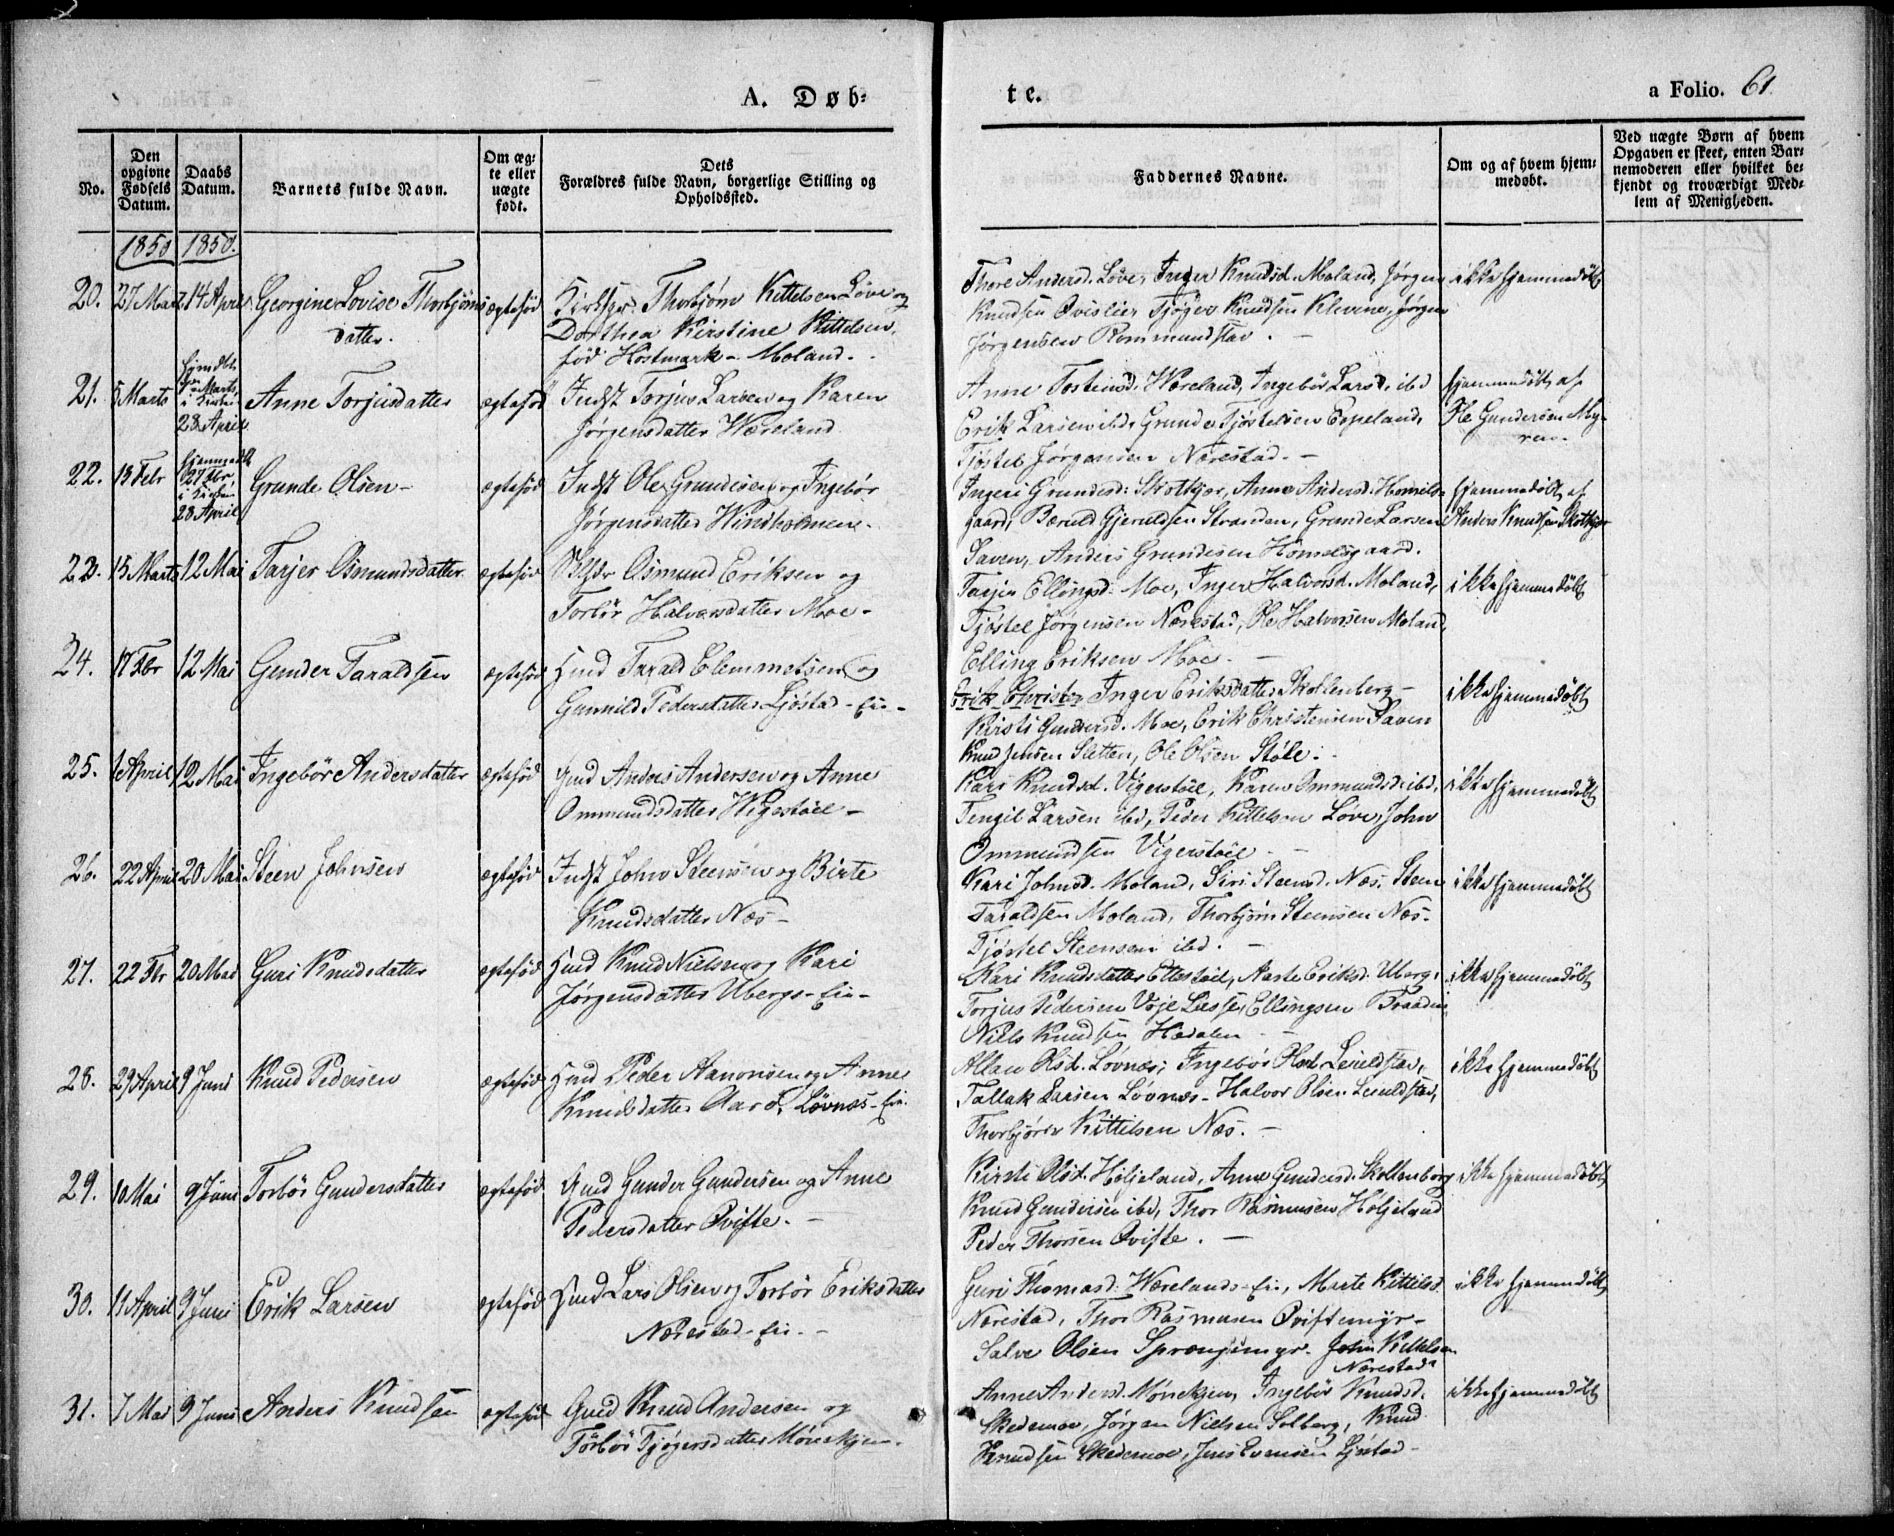 A. Døb-
te.
a Folio. 61.
No.
Den opgivne Fødsels Datum.
Daabs Datum.
Barnets fulde Navn.
Om ægte eller uægte født.
Dets Forældres fulde Navn, borgerlige Stilling og Opholdssted.
Faddernes Navne.
Om og af hvem hjemmedøbt.
Ved uægte Børn af hvem Opgaven er skeet, enten Barnemoderen eller hvilket bekjendt og troværdigt Medlem af Menigheden.
1850 1850.
20. 27 Marts 14 April Georgine Lovise Thorbjøns
datter.
ægtefød
Kirksgr. Thorbjørn Kittelsen Løve og
Dorthea Kirstine Kittelsen,
fød Hostmark - Moland.
Thore Andersd. Løve, Inger Knudsd. Moland, Jørgen
Knudsen Qvislier Tjøger Knudsen Klevene, Jørgen
Jørgensen Rommundstav. -
ikke hjemmedøbt
21. 5 Marts
Hjemdbt
Marts,
i Kirken
28 April
Anne Torjusdatter
ægtefød
Indst Torjus Larsen og Karen
Jørgensdatter Wæreland
Anne Tostensd. Wæreland, Ingebør Larsd. ibd
Erik Larsen ibd, Grunde Tjøstelsen Espeland,
Tjøstel Jørgensen Nærestad. -
hjemmedøbt af
Ole Gundersen My-
ren.
22. 13 Febr
hjemmedbt
27 Fbr,
i Kirken
28 April
Grunde Olsen -
ægtefød
Indst Ole Grundesen og Ingebør
Jørgensdatter Windholmen.
Ingeri Grundesd: Skotkjær, Anne Andersd: Homels-
gaard, Bæruld Gjeruldsen Stranden, Grunde Larsen
Saven, Anders Grundesen Homelsgaard.
hjemmedøbt af
Anders Knudsen Skotkjær
23. 15 Marts 12 Mai Tarjer Osmundsdatter
ægtefød
Osmund Eriksen og
Torbør Halvorsdatter Moe -
Tarjer Ellingsd: Moe, Inger Halvorsd. Moland,
Tjøstel Jørgensen Nærestad, Ole Halvorsen Moland,
Elling Eriksen Moe. -
ikke hjemmedøbt
24. 17 Fbr 12 Mai Gunder Taraldsen
ægtefød
Hmd Tarald Clemmetsen og
Gunnild Pedersdatter Ljøstad - Ein -
Erik Christen Inger Eriksdatter Skollenberg -
Kirsti Gundersd. Moe, Erik Christensen Saven
Knud Jensen Sletten, Ole Olsen Støle.
ikke hjemmedøbt
25. 1 April 12 Mai Ingebør Andersdatter
ægtefød
Gmd Anders Andersen og Anne
Ommundsdatter Wigestøel -
Kari Knudsd. Vigerstøel, Karen Ommundsd: ibd,
Tengil Larsen ibd, Peder Kittelsen Løve, John
Ommundsen Vigerstøel -
ikke hjemmedøbt
26. 22 April 20 Mai Steen Johnsen
ægtefød
Indst John Steensen og Birte
Knudsdatter Næs -
Kari Johnsd. Moland, Siri Steensd. Næs, Steen
Taraldsen Moland, Thorbjørn Steensen Næs.
Tjøstel Steensen ibd. -
ikke hjemmedøbt
27. 22 Fbr 20 Mai Guri Knudsdatter
ægtefød
Hmd Knud Nielsen og Kari
Jørgensdatter Ubergs - Ein -
Kari Knudsdatter Ettestøel, Aaste Eriksd. Uberg,
Torjus Pedersen Voje Lasse Ellingsen Braaden
Niels Knudsen Hædalen -
ikke hjemmedøbt
28. 29 April 9 Juni Knud Pedersen
ægtefød
Hmd Peder Aanonsen og Anne
Knudsdatter Aard, Løvnæs - Ein.
Allau Olsd. Løvnæs, Ingebør Olsd. Leuldstad,
Tallak Larsen Løvnæs - Halvor Olsen Leuldstad,
Thorbjørn Kittelsen Næs. -
ikke hjemmedøbt
29. 10 Mai 9 Juni Torbør Gundersdatter
ægtefød
Gmd Gunder Gundersen og Anne
Pedersdatter Qvifte. -
Kirsti Olsd. Holjeland, Anne Gundersd. Skollenberg
Knud Gundersen ibd, Thor Rasmusen Holjeland
Peder Thorsen Qvifte. -
ikke hjemmedøbt
30. 11 April 9 Juni Erik Larsen
ægtefød
Hmd Lars Olsen og Torbør Eriksdatter
Nærestad - Ein. -
Guri Thomasd: Wærelands - Ein, Marte Kittelsd
Nærestad, Thor Rasmusen Qviftemyr -
Salve Olsen Sprangemyr. John Kittelsen
Nærestad
ikke hjemmedøbt
31. 7 Mai 9 Juni Anders Knudsen
ægtefød
Gmd Knud Andersen og
Torbør Tjøgersdatter Mønekjen.
Anne Andersd. Mønekjen, Ingebør Knudsd.
Skedemoe, Jørgen Nielsen Solberg, Knud
Knudsen Skedemoe, Jens Evensen Ljøstad -
ikke hjemmedøbt